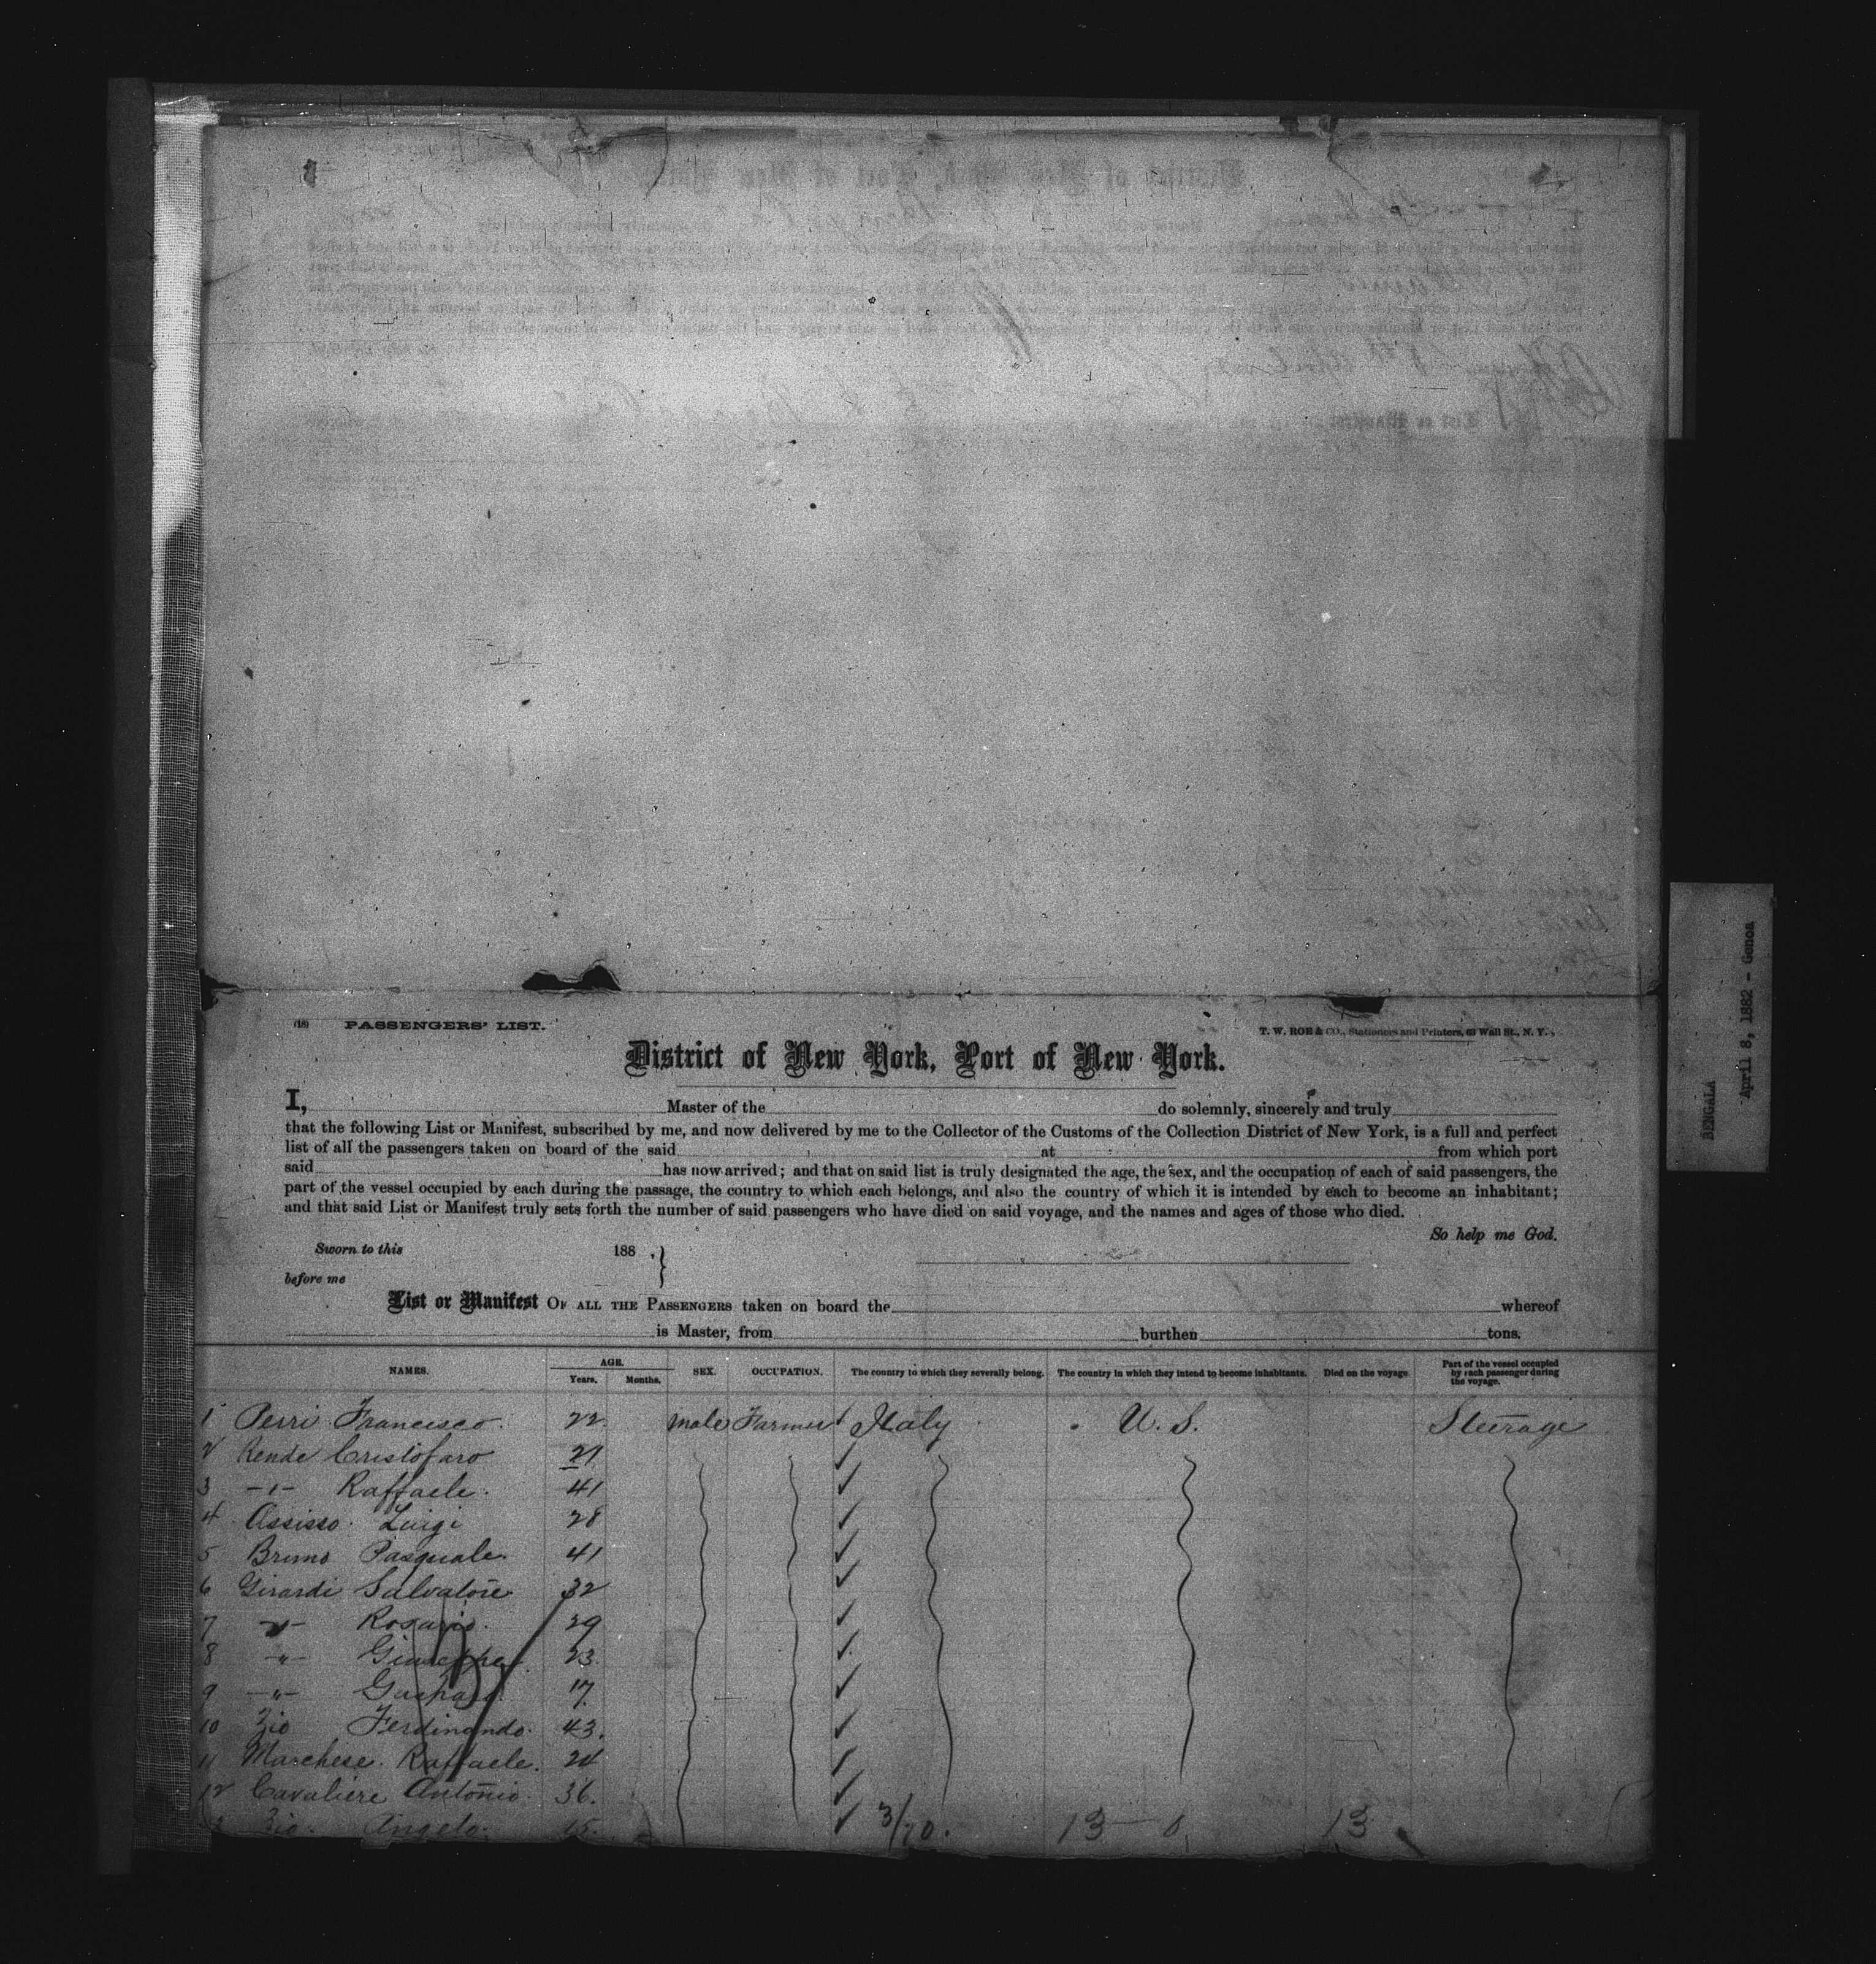 (18) PASSENGERS' LIST. T. W. ROE & CO., Stationers and Printers, 69 Wall St., N. Y.
District of New York, Port of New York.
I, Master of the do solemnly, sincerely and truly
that the following List or Manifest, subscribed by me, and now delivered by me to the Collector of the Customs of the Collection District of New York, is a full and perfect
list of all the passengers taken on board of the said at from which port
said has now arrived; and that on said list is truly designated the age, the sex, and the occupation of each of said passengers, the
part of the vessel occupied by each during the passage, the country to which each belongs, and also the country of which it is intended by each to become an inhabitant;
and that said List or Manifest truly sets forth the number of said passengers who have died on said voyage, and the names and ages of those who died.
So help me God.
Sworn to this 188 . }
before me
List or Manifest OF ALL THE PASSENGERS taken on board the whereof
is Master, from burthen tons.
NAMES. AGE. Years. Months. SEX. OCCUPATION. The country to which they severally belong. The country in which they intend to become inhabitants. Died on the voyage. Part of the vessel occupied by each passenger during the voyage.
1 Perri Francesco. 22. male Farmer Italy U. S. Steerage
2 Rende Cristofaro 21
3 -"- Raffaele. 41
4 Assisso. Luigi 28
5 Bruno Pasquale. 41
6 Girardi Salvatore 32
7 -"- Rosario. 29
8 -"- Giuseppe 23.
9 -"- 17.
10 Zio Ferdinando. 43.
11 Marchese. Raffaele. 24
12 Cavaliere Antonio. 36.
Zio. Angelo. 15. 3/70. 13 — 0 13
BENGALA
April 8, 1882 - Genoa